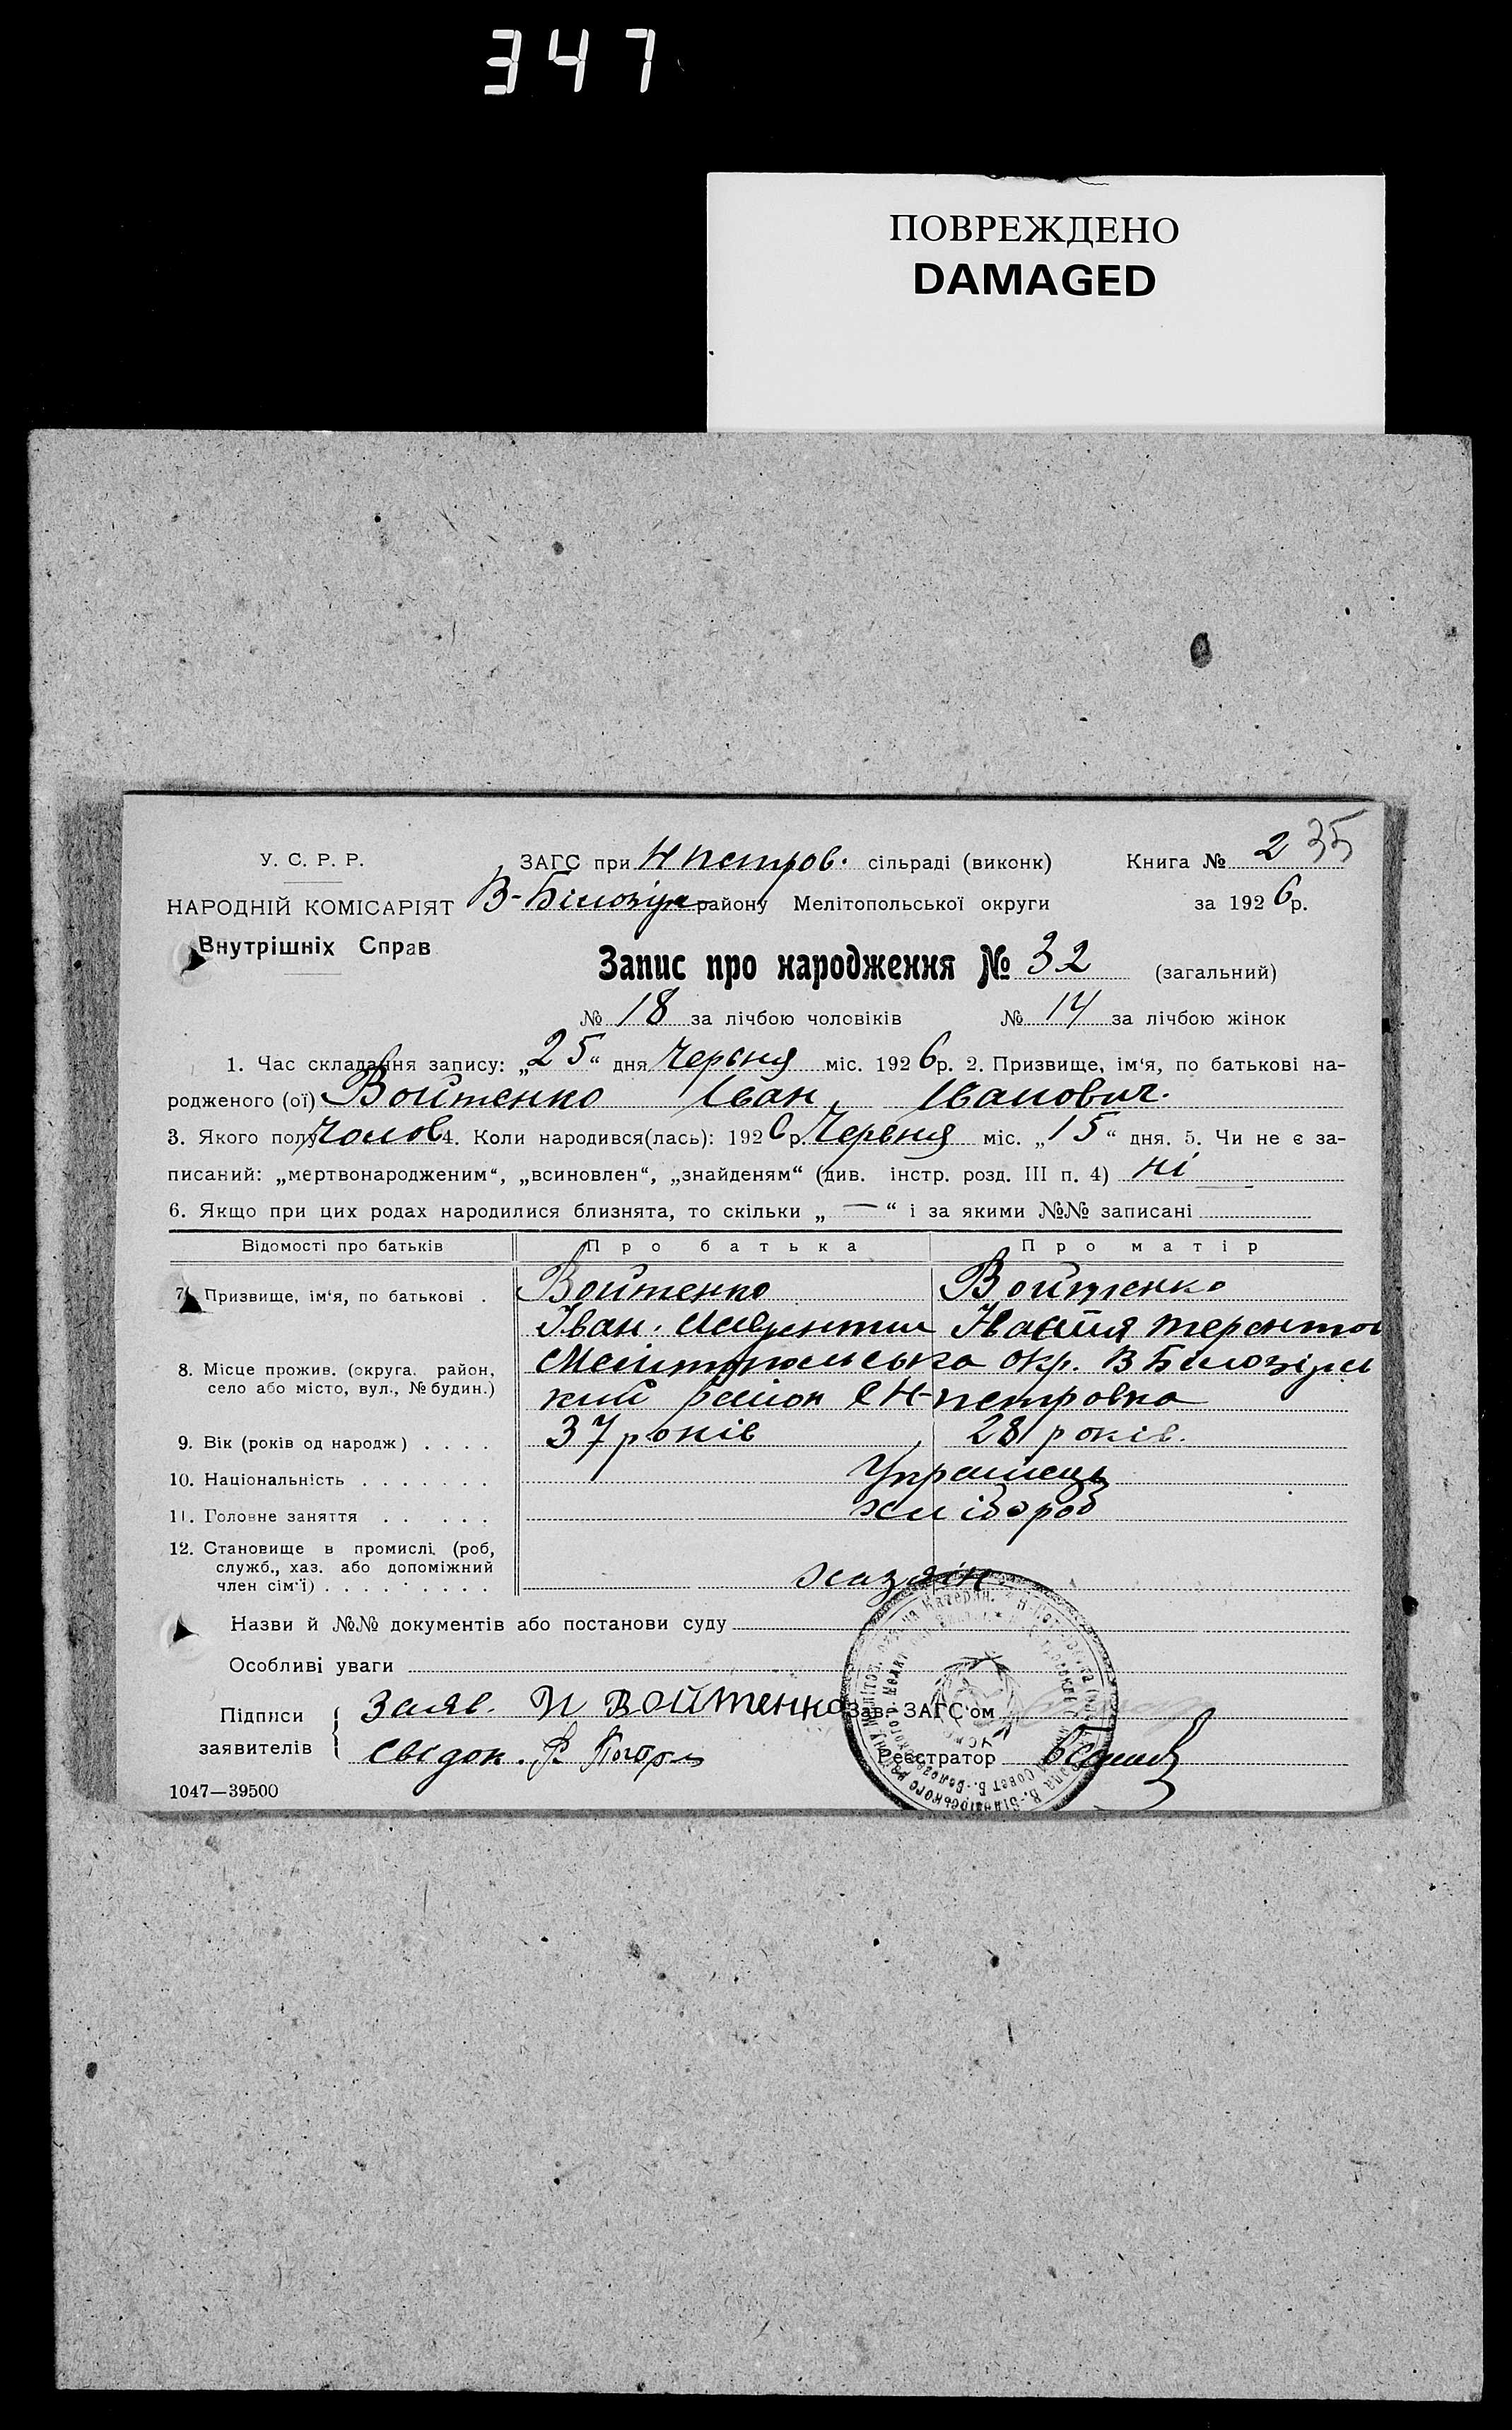 347
ПОВРЕЖДЕНО
DAMAGED
У. С. Р. Р.
НАРОДНІЙ КОМІСАРІЯТ
Внутрішніх Справ
ЗАГС при Н петров. сільраді (виконк)
В-Білозір району Мелітопольської округи
Книга № 2 35
за 1926 р.
Запис про народження № 32 (загальний)
№ 18 за лічбою чоловіків № 14 за лічбою жінок
1. Час складання запису: „25“ дня Червня міс. 1926 р. 2. Призвище, ім‘я, по батькові на-
родженого (ої) Войтенко Іван Іванович.
3. Якого полу Чолов 4. Коли народився(лась): 1926 р. Червня міс. „15“ дня. 5. Чи не є за-
писаний: „мертвонародженим“, „всиновлен“, „знайденям“ (див. інстр. розд. III п. 4) ні
6. Якщо при цих родах народилися близнята, то скільки „—“ і за якими №№ записані
Відомості про батьків Про батька Про матір
7. Призвище, ім‘я, по батькові . Войтенко Войтенко
Іван Терентов
8. Місце прожив. (округа, район, село або місто, вул., № будин.) Мелітопольська окр. В Білозірсь
кий район с Н-петровка
9. Вік (років од народж) . . . . 37 років 28 років.
10. Національність . . . . . . . Українець
11. Головне заняття . . . . . хлібороб
12. Становище в промислі (роб, служб., хаз. або допоміжний член сім‘ї) . . . . . . . . . хазяін
Назви й №№ документів або постанови суду
Особливі уваги
Підписи заявителів
Заяв. И Войтенко
Свідок. Ф
Зав. ЗАГС‘ом
Реєстратор
1047—39500